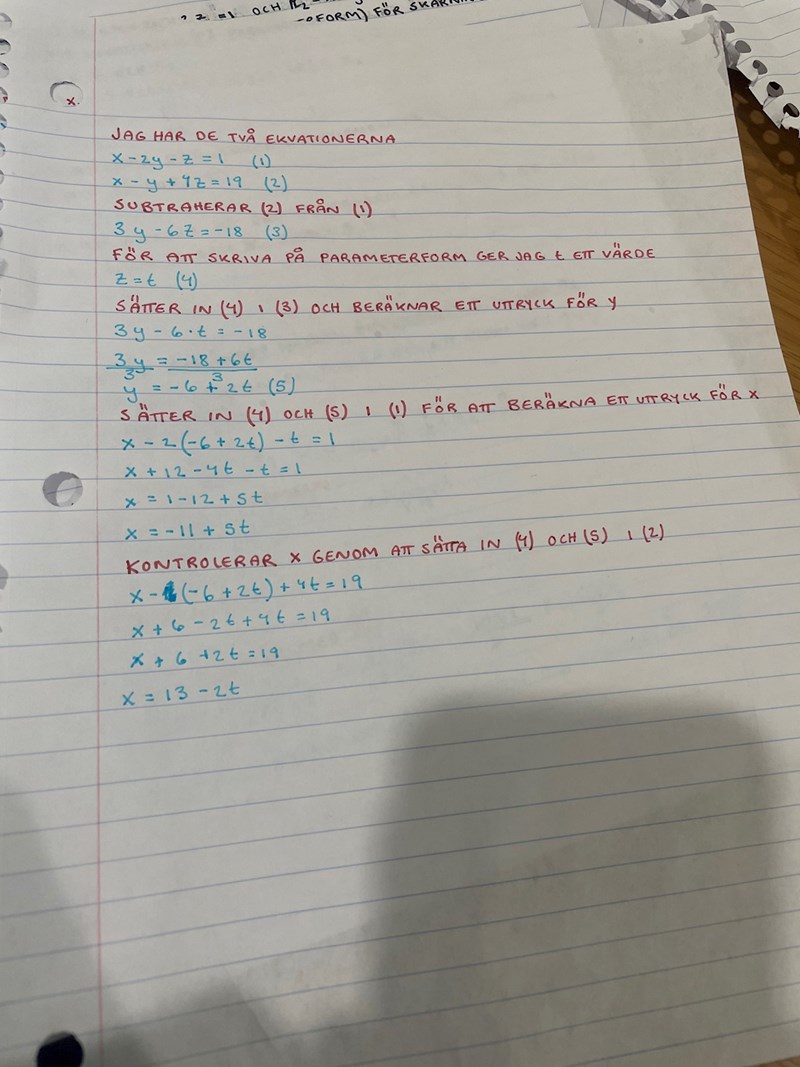 z = 1 OCH
FORM) FÖR
x.
JAG HAR DE TVÅ EKVATIONERNA
x - 2y - z = 1 (1)
x - y + 4z = 19 (2)
SUBTRAHERAR (2) FRÅN (1)
3y - 6z = -18 (3)
FÖR ATT SKRIVA PÅ PARAMETERFORM GER JAG t ETT VÄRDE
z = t (4)
SÄTTER IN (4) I (3) OCH BERÄKNAR ETT UTTRYCK FÖR y
3y - 6·t = -18
3y = -18 + 6t
3 3
y = -6 + 2t (5)
SÄTTER IN (4) OCH (5) I (1) FÖR ATT BERÄKNA ETT UTTRYCK FÖR x
x - 2(-6 + 2t) - t = 1
x + 12 - 4t - t = 1
x = 1 - 12 + 5t
x = -11 + 5t
KONTROLERAR x GENOM ATT SÄTTA IN (4) OCH (5) I (2)
x - 1(-6 + 2t) + 4t = 19
x + 6 - 2t + 4t = 19
x + 6 + 2t = 19
x = 13 - 2t